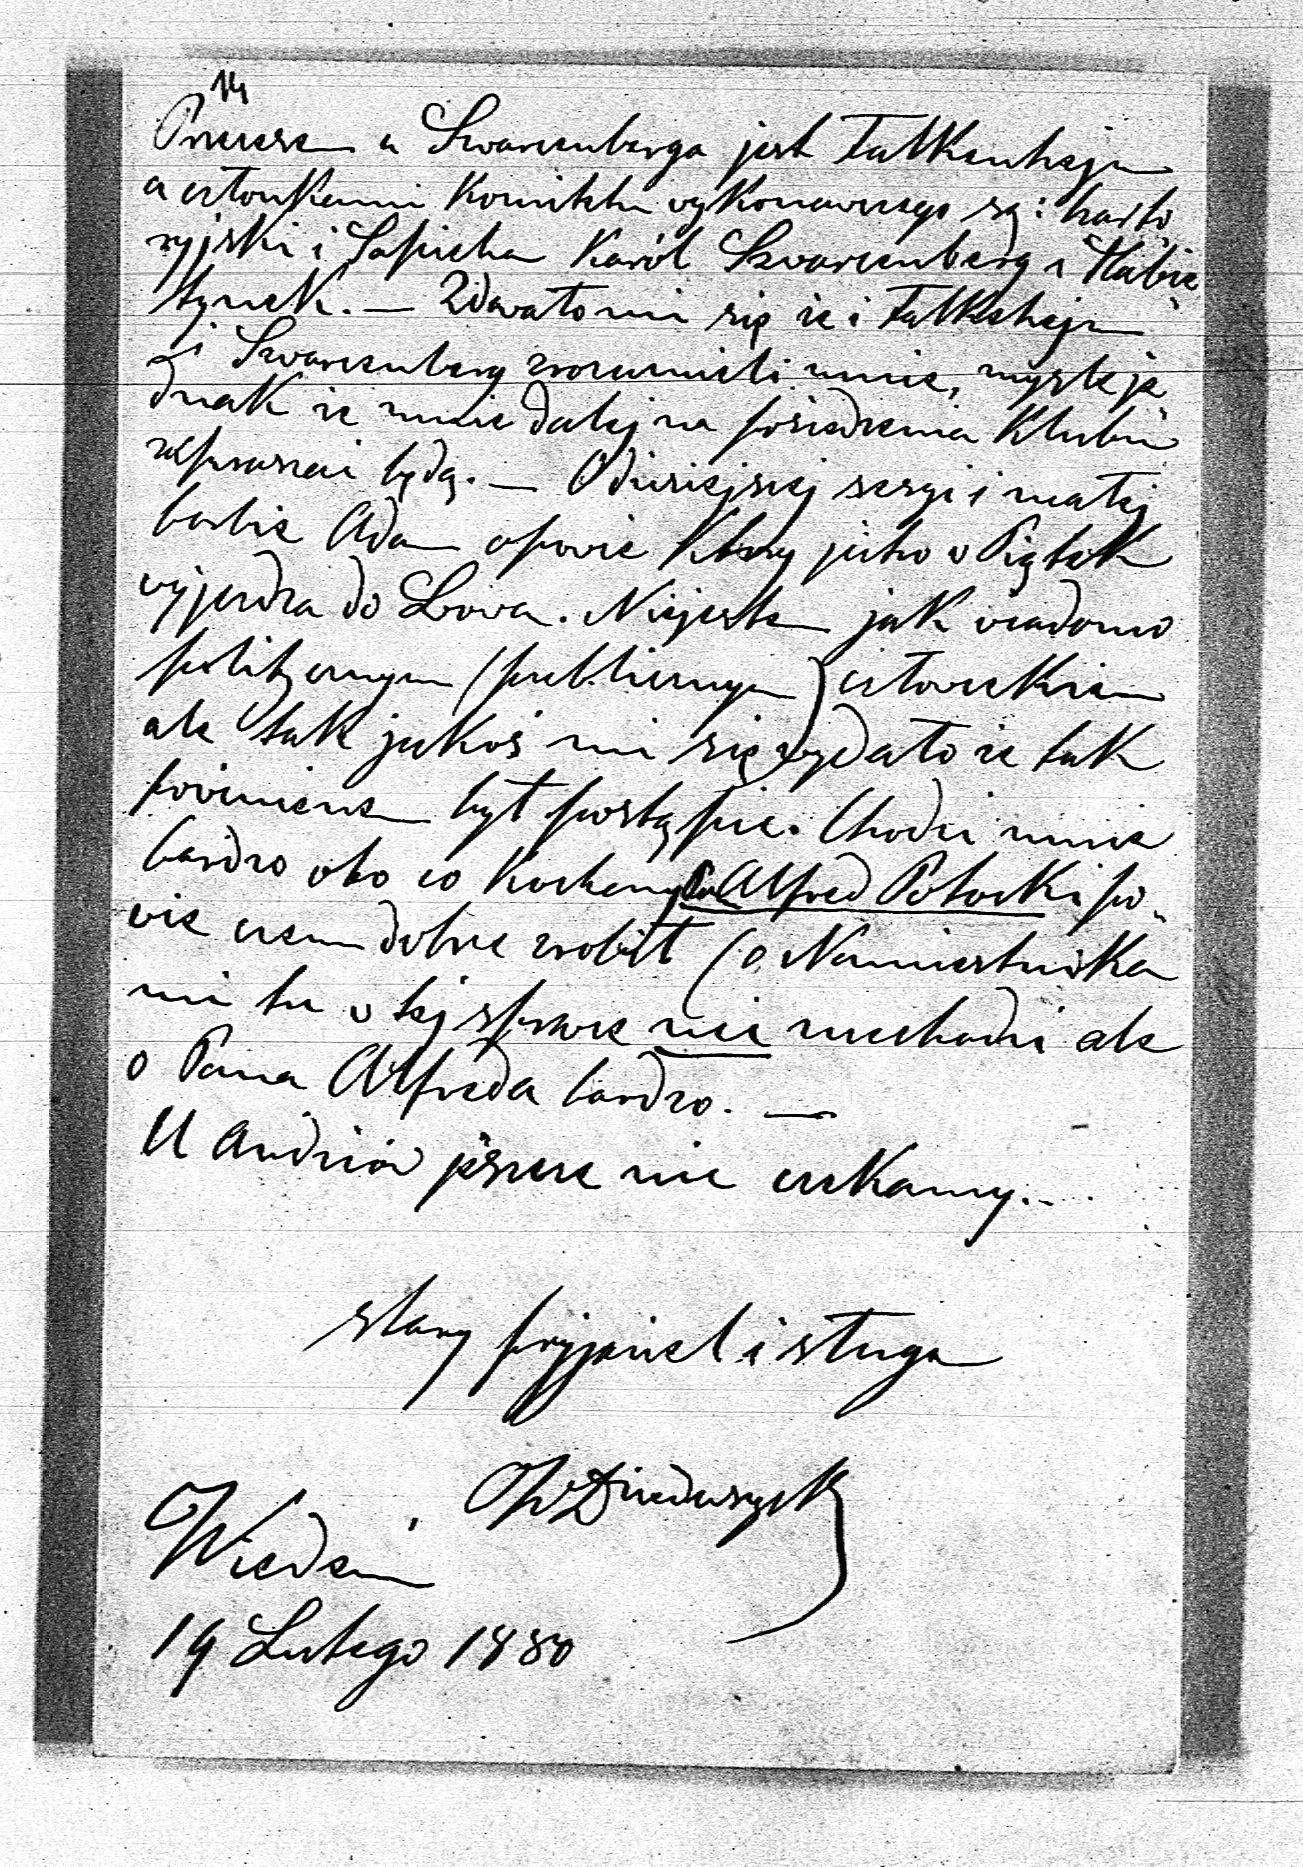 14
Prezesem u Szwarcenberga jest Falkenhejn
a członkami Komitetu wykonawczego są: Czarto
ryjski i Sapieha Karól Szwarcenberg i
tynek. — Zdawało mi się że i Falkehejn
i Szwarcenberg zrozumieli mnie, myslę je
dnak że mnie dalej na posiedzenia Klubu
zapraszai będą. — O dzisiejszej sesyi i małej
Adam opowie Ktory jutro w Piątek
wyjerdza do Lwowa. Niejestem jak wiadomo
politycznym (publicznym) człowiekiem
ale tak jakoś mi się wydało że tak
powinienem był postąpic. Chodzi mnie
bardzo oto co Kochany Pan Alfred Potocki po„
wie czem dobrze zrobił (o Namiestnika
mi tu w tej sprawie nic niechodzi ale
o Pana Alfreda bardzo. —
U Audziów jeszcze nie czekamy...
stary przyjaciel i sługa
WDzieduszycki
Wiedeń
19 Lutego 1880